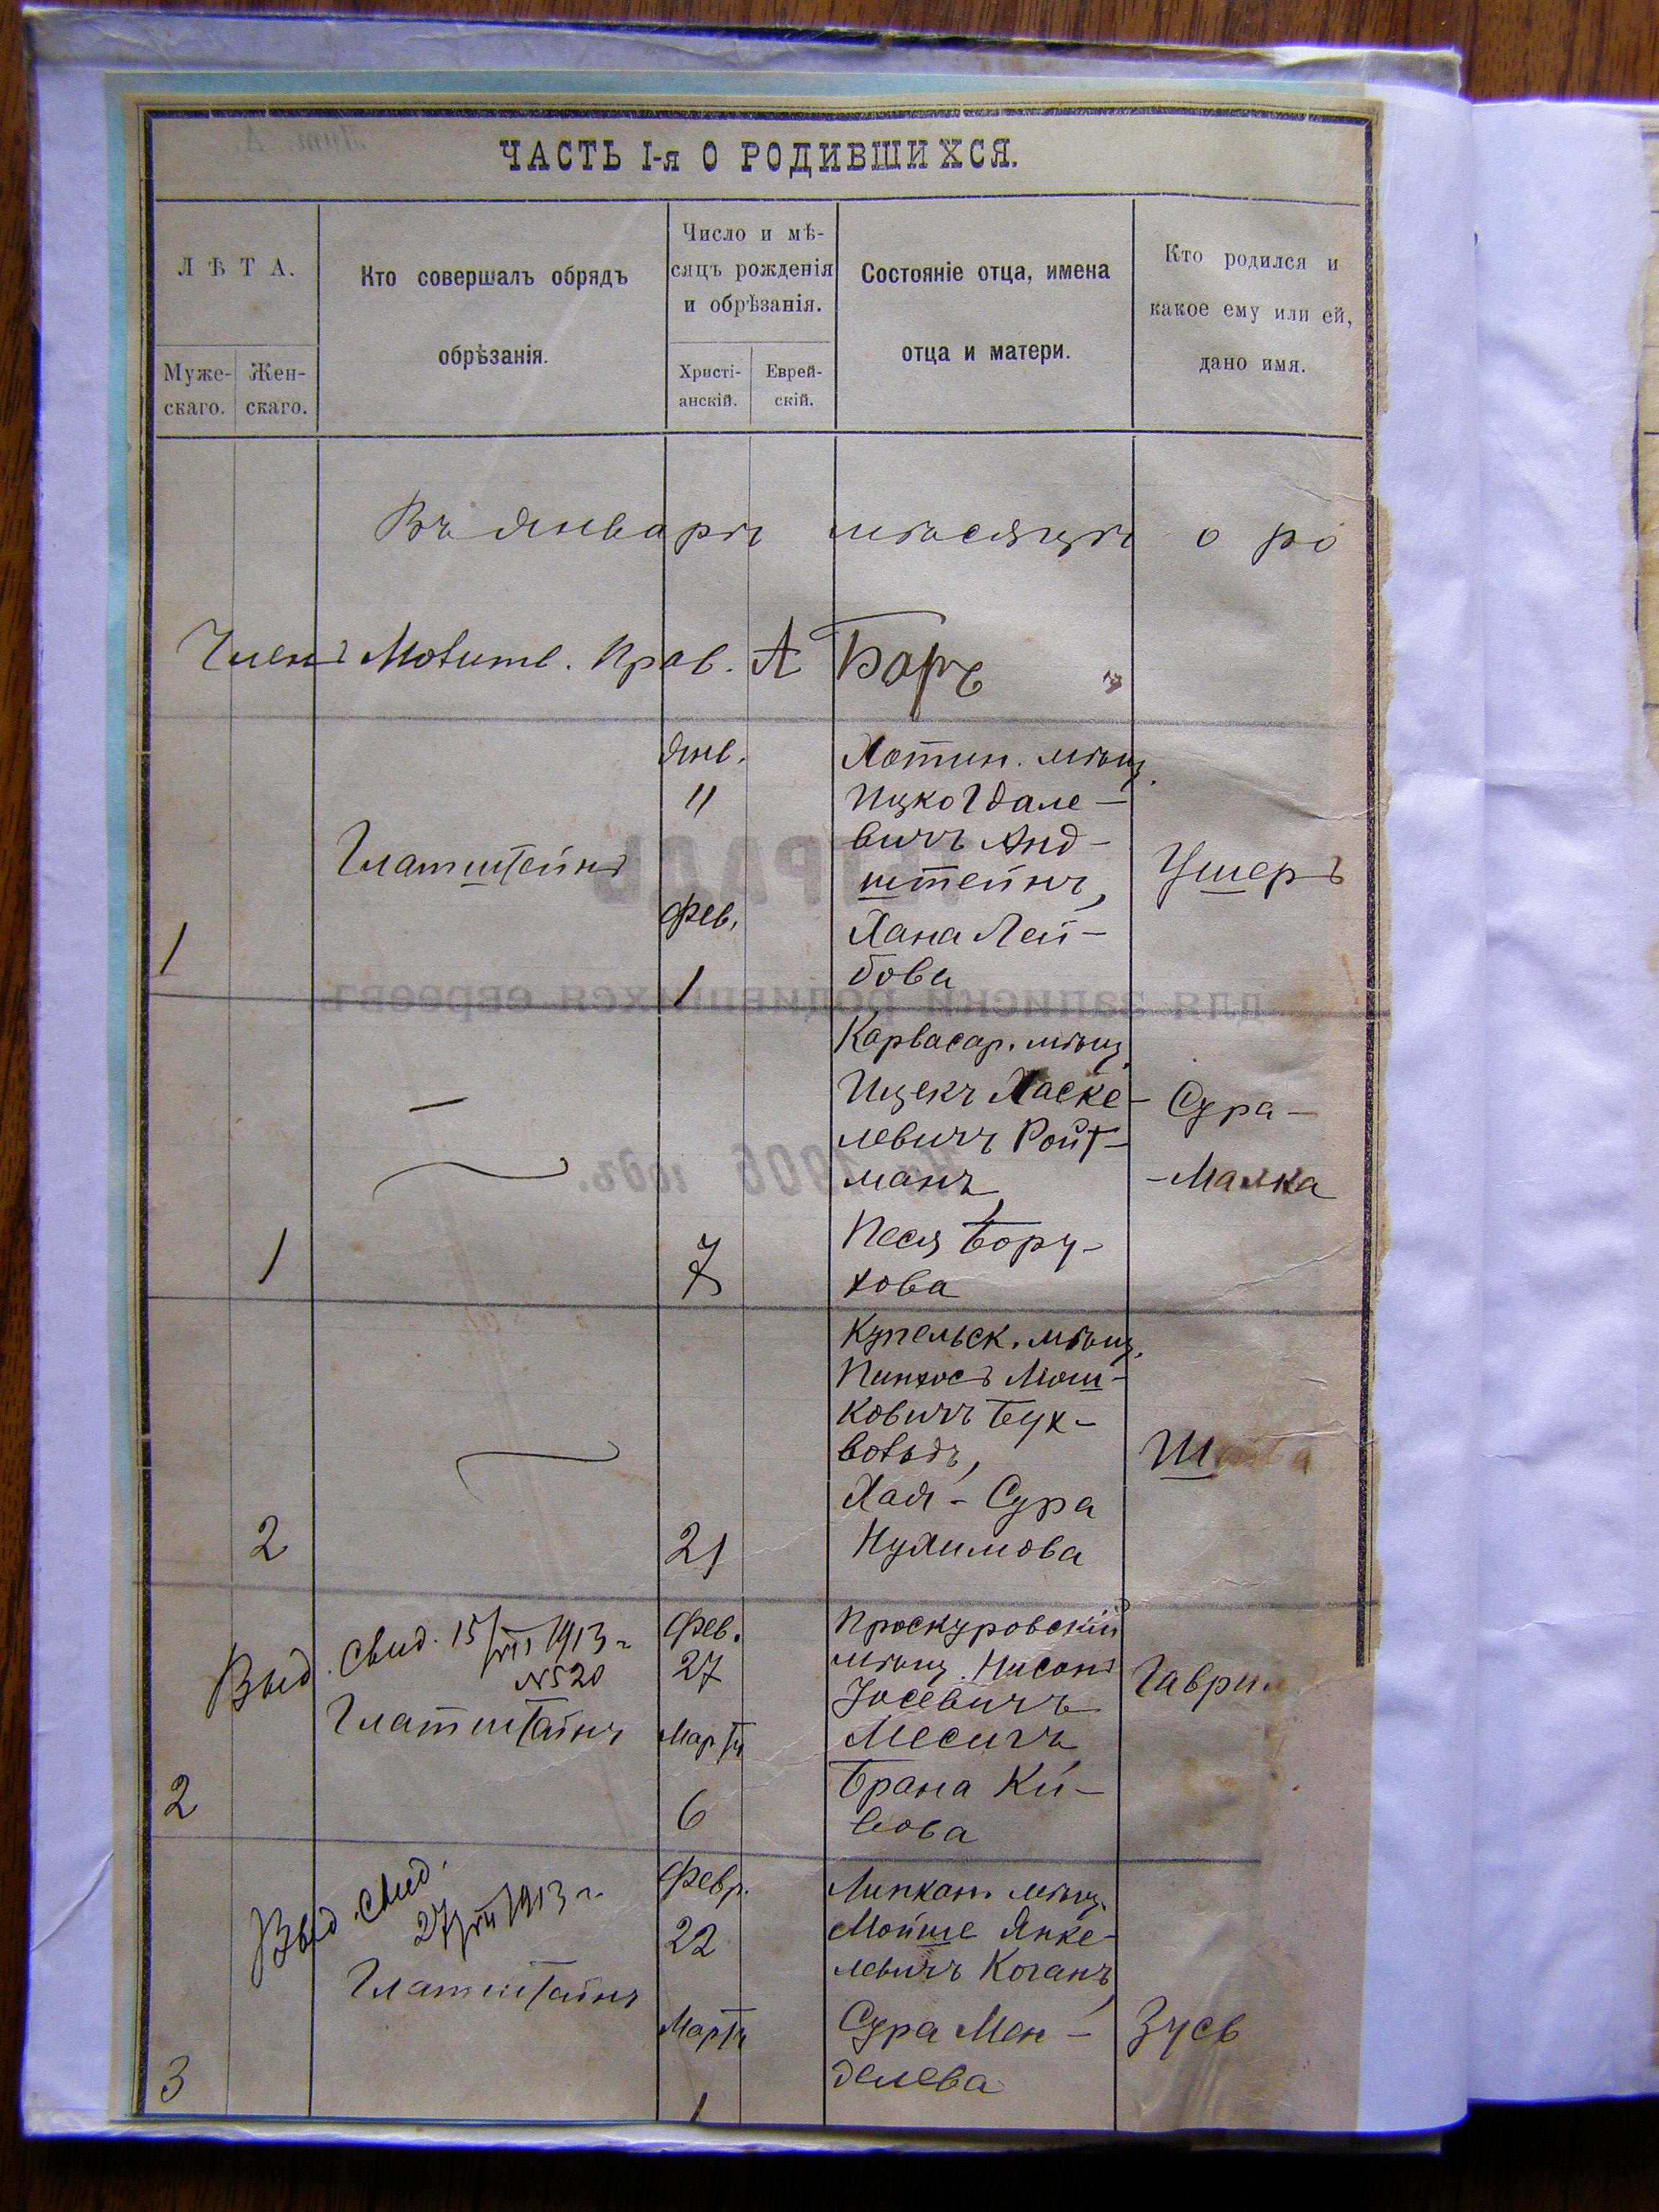 ЧАСТЬ I-я О РОДИВШИХСЯ.
ЛѢТА.
Муже-
скаго.
Жен-
скаго.
Кто совершалъ обрядъ
обрѣзанія.
Число и мѣ-
сяцъ рожденія
и обрѣзанія.
Христі-
анскій.
Еврей-
скій.
Состояніе отца, имена
отца и матери.
Кто родился и
какое ему или ей,
дано имя.
Въ Январѣ мѣсяцѣ о ро
Членъ Молите. Прав. А Боръ
1
Глатштейнъ
Янв.
"
Фев.
1
Хотин. мѣщ.
Ицко Гдале-
вичъ Анд-
штейнъ,
Хана Лей-
бова
Ушеръ
1
—
7
Карвасар. мѣщ.
Ицекъ Хаске-
левичъ Ройт-
манъ,
Песя Бору-
хова
Сура-
-Малка
2
21
Купельск. мѣщ.
Пинхосъ Мош-
ковичъ Бук-
Хая-Сура
Нухимова
2
Выд. свид. 15/VII 1913 г
№520
Глатштайнъ
Фев.
27
Мартъ
6
Проскуровскій
мѣщ. Нисонъ
Іосевичъ
Месичъ
Брана Ки-
вова
Гаврил
3
Выд. свид.
27/VII 1913 г.
Глатштайнъ
Февр.
22
Мартъ
1
Липкан. мѣщ.
Мойше Янке-
левичъ Коганъ,
Сура Мен-
делева
Зусь